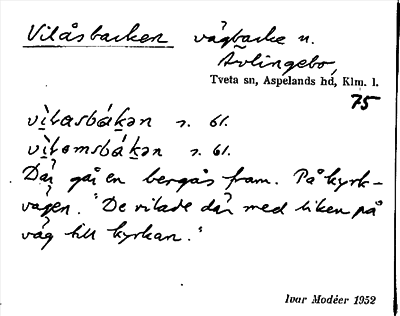 Vilåsbacken vägbacke n.
Åvlingebo,
Tveta sn, Aspelands hd, Klm. l.
75
vìlasbákən s. 61.
vìlomsbákən s. 61.
Där går en bergås fram. På kyrk-
vägen. "De vilade där med liken på
väg till kyrkan."
Ivar Modéer 1952